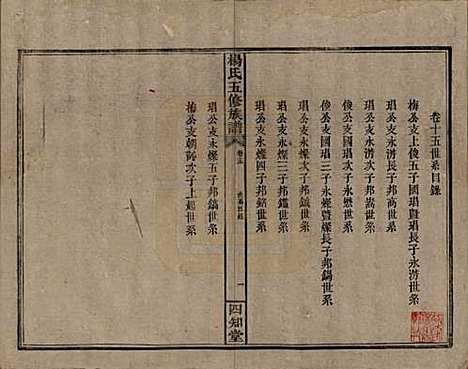 卷十五世系目錄
梅公支上俊五子國瑻暨瑻長子永澇世系
瑻公支永澇次子邦嵩世系
俊公支國瑻次子永懋世系
俊公支國瑻三子永燦暨燦長子邦錫世系
瑻公支永燦次子邦鉞世系
瑻公支永燦三子邦鑑世系
瑻公支永燦四子邦銘世系
楊氏五修族譜
卷十五
一
四知堂
瑻公支永燦五子邦鎬世系
梅公支朝 次子上起世系